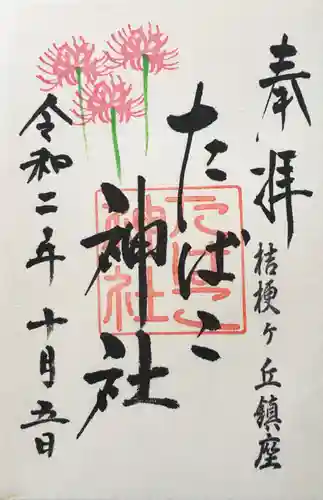 奉拝
桔梗ヶ丘鎮座
たばこ
神社
令和二年十月五日
たばこ
神社